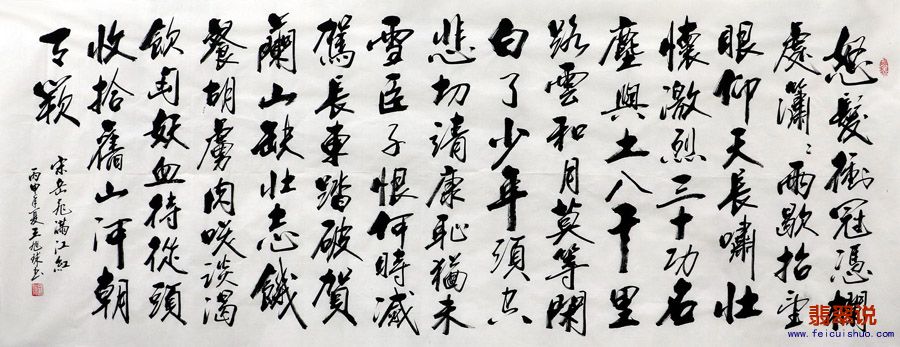 怒髮衝冠憑欄
處瀟瀟雨歇抬望
眼仰天長嘯壯
懷激烈三十功名
塵與土八千里
路雲和月莫等閑
白了少年頭空
悲切靖康恥猶未
雪臣子恨何時滅
駕長車踏破賀
蘭山缺壯志饑
餐胡虜肉笑談渴
飲匈奴血待從頭
收拾舊山河朝
天闕
宋岳飛滿江紅
丙申年夏王旭書
翡翠说
www.feicuishuo.com